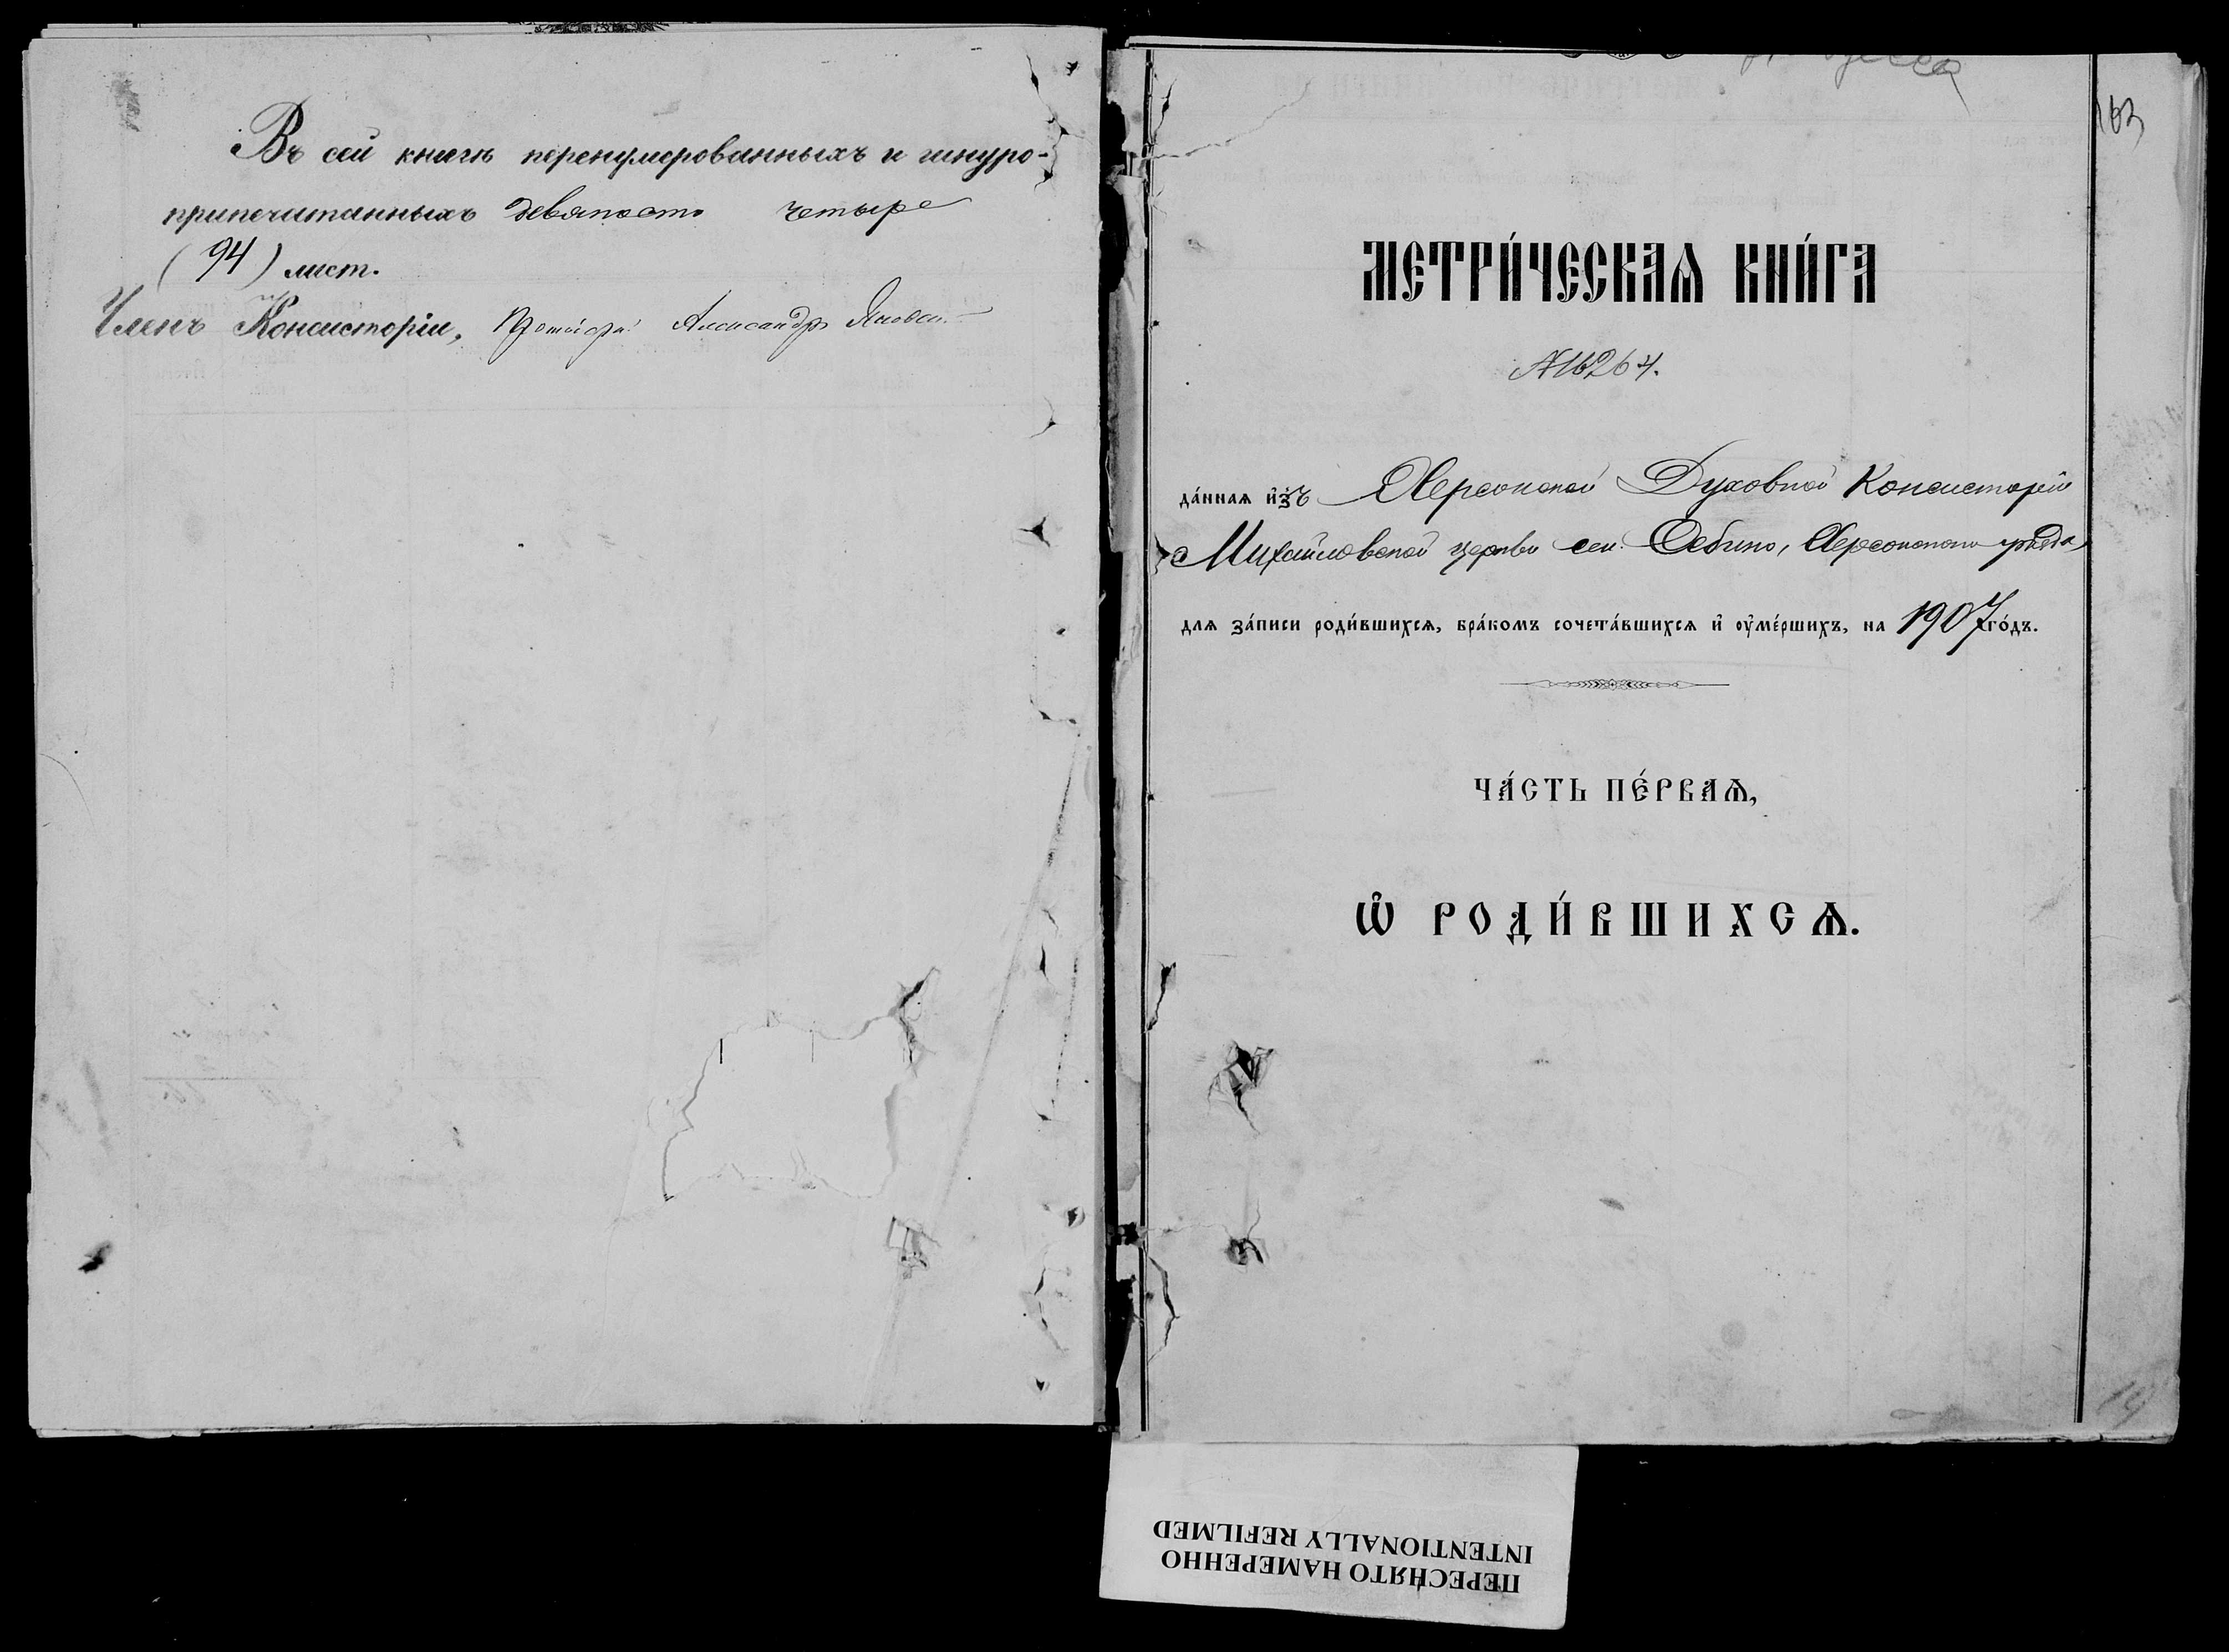 Въ сей книгѣ перенумерованныхъ и шнуро-
припечатанныхъ девяносто четыре
(94) лист.
Членъ Консисторіи, Александръ
163
МЕТРИ́ЧЕСКАѦ КНИ́ГА
№ 16264.
да́ннаѧ и҆зъ Херсонской Духовной Консисторіи
Михайловской церкви сел. Себино, Херсонскаго уѣзда,
длѧ за́писи роди́вшихсѧ, бра́комъ сочета́вшихсѧ и҆ ᲂу҆ме́ршихъ, на 1907 го́дъ.
ЧА́СТЬ ПЕ́РВАѦ,
Ѡ҆ РОДИ́ВШИХСѦ.
14
ПЕРЕСНЯТО НАМЕРЕННО
INTENTIONALLY REFILMED